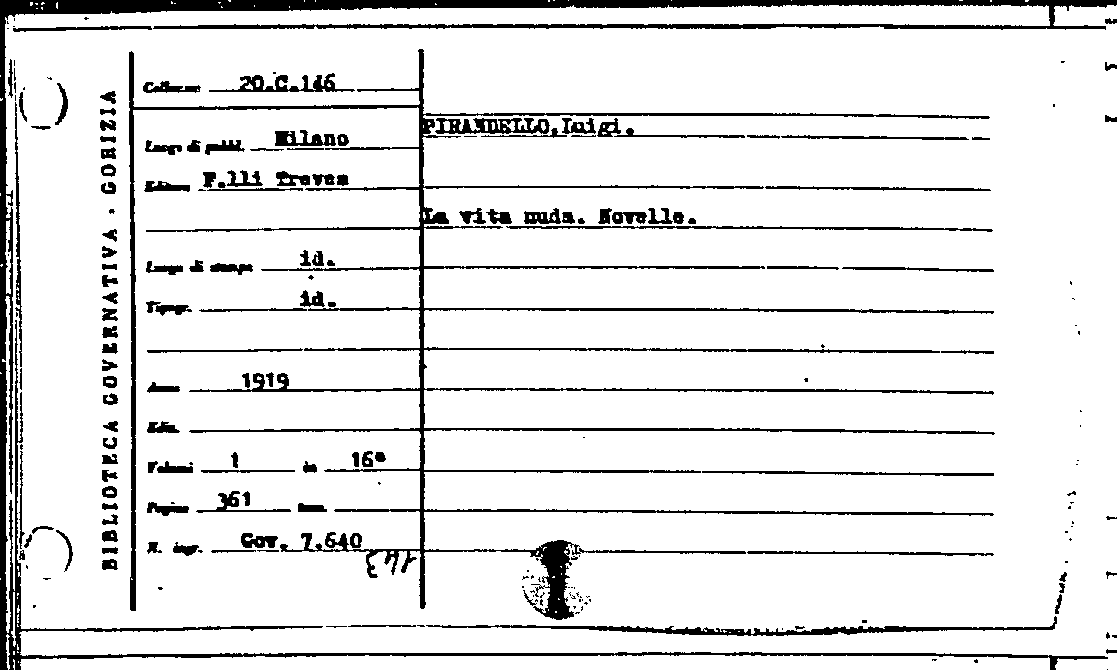 BIBLIOTECA GOVERNATIVA - GORIZIA
Collocaz. 20.C.146
PIRANDELLO,Luigi.
Luogo di pubbl. Milano
Editore F.lli Treves
La vita nuda. Novelle.
Luogo di stampa id.
Tipogr. id.
Anno 1919
Ediz.
Volumi 1 in 16°
Pagine 361
N. ingr. Gov. 7.640